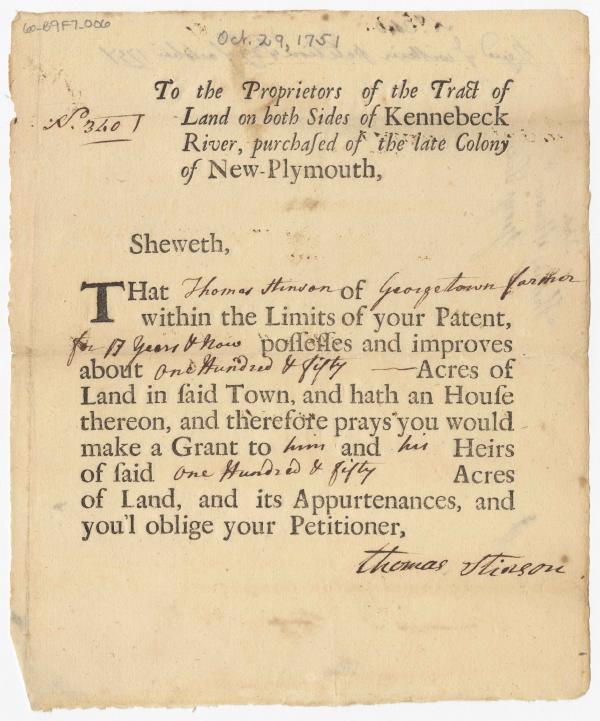 60-B9F7-006
Oct. 29, 1751
To the Proprietors of the Tract of
Nº. 340
Land on both Sides of Kennebeck
River, purchaſed of the late Colony
of New-Plymouth,
Sheweth,
THat Thomas Stinson of Georgetown farmer
within the Limits of your Patent,
for 17 Years & Now poſſeſſes and improves
about One Hundred & fifty — Acres of
Land in ſaid Town, and hath an Houſe
thereon, and therefore prays you would
make a Grant to him and his Heirs
of ſaid One Hundred & fifty Acres
of Land, and its Appurtenances, and
you'l oblige your Petitioner,
Thomas Stinson